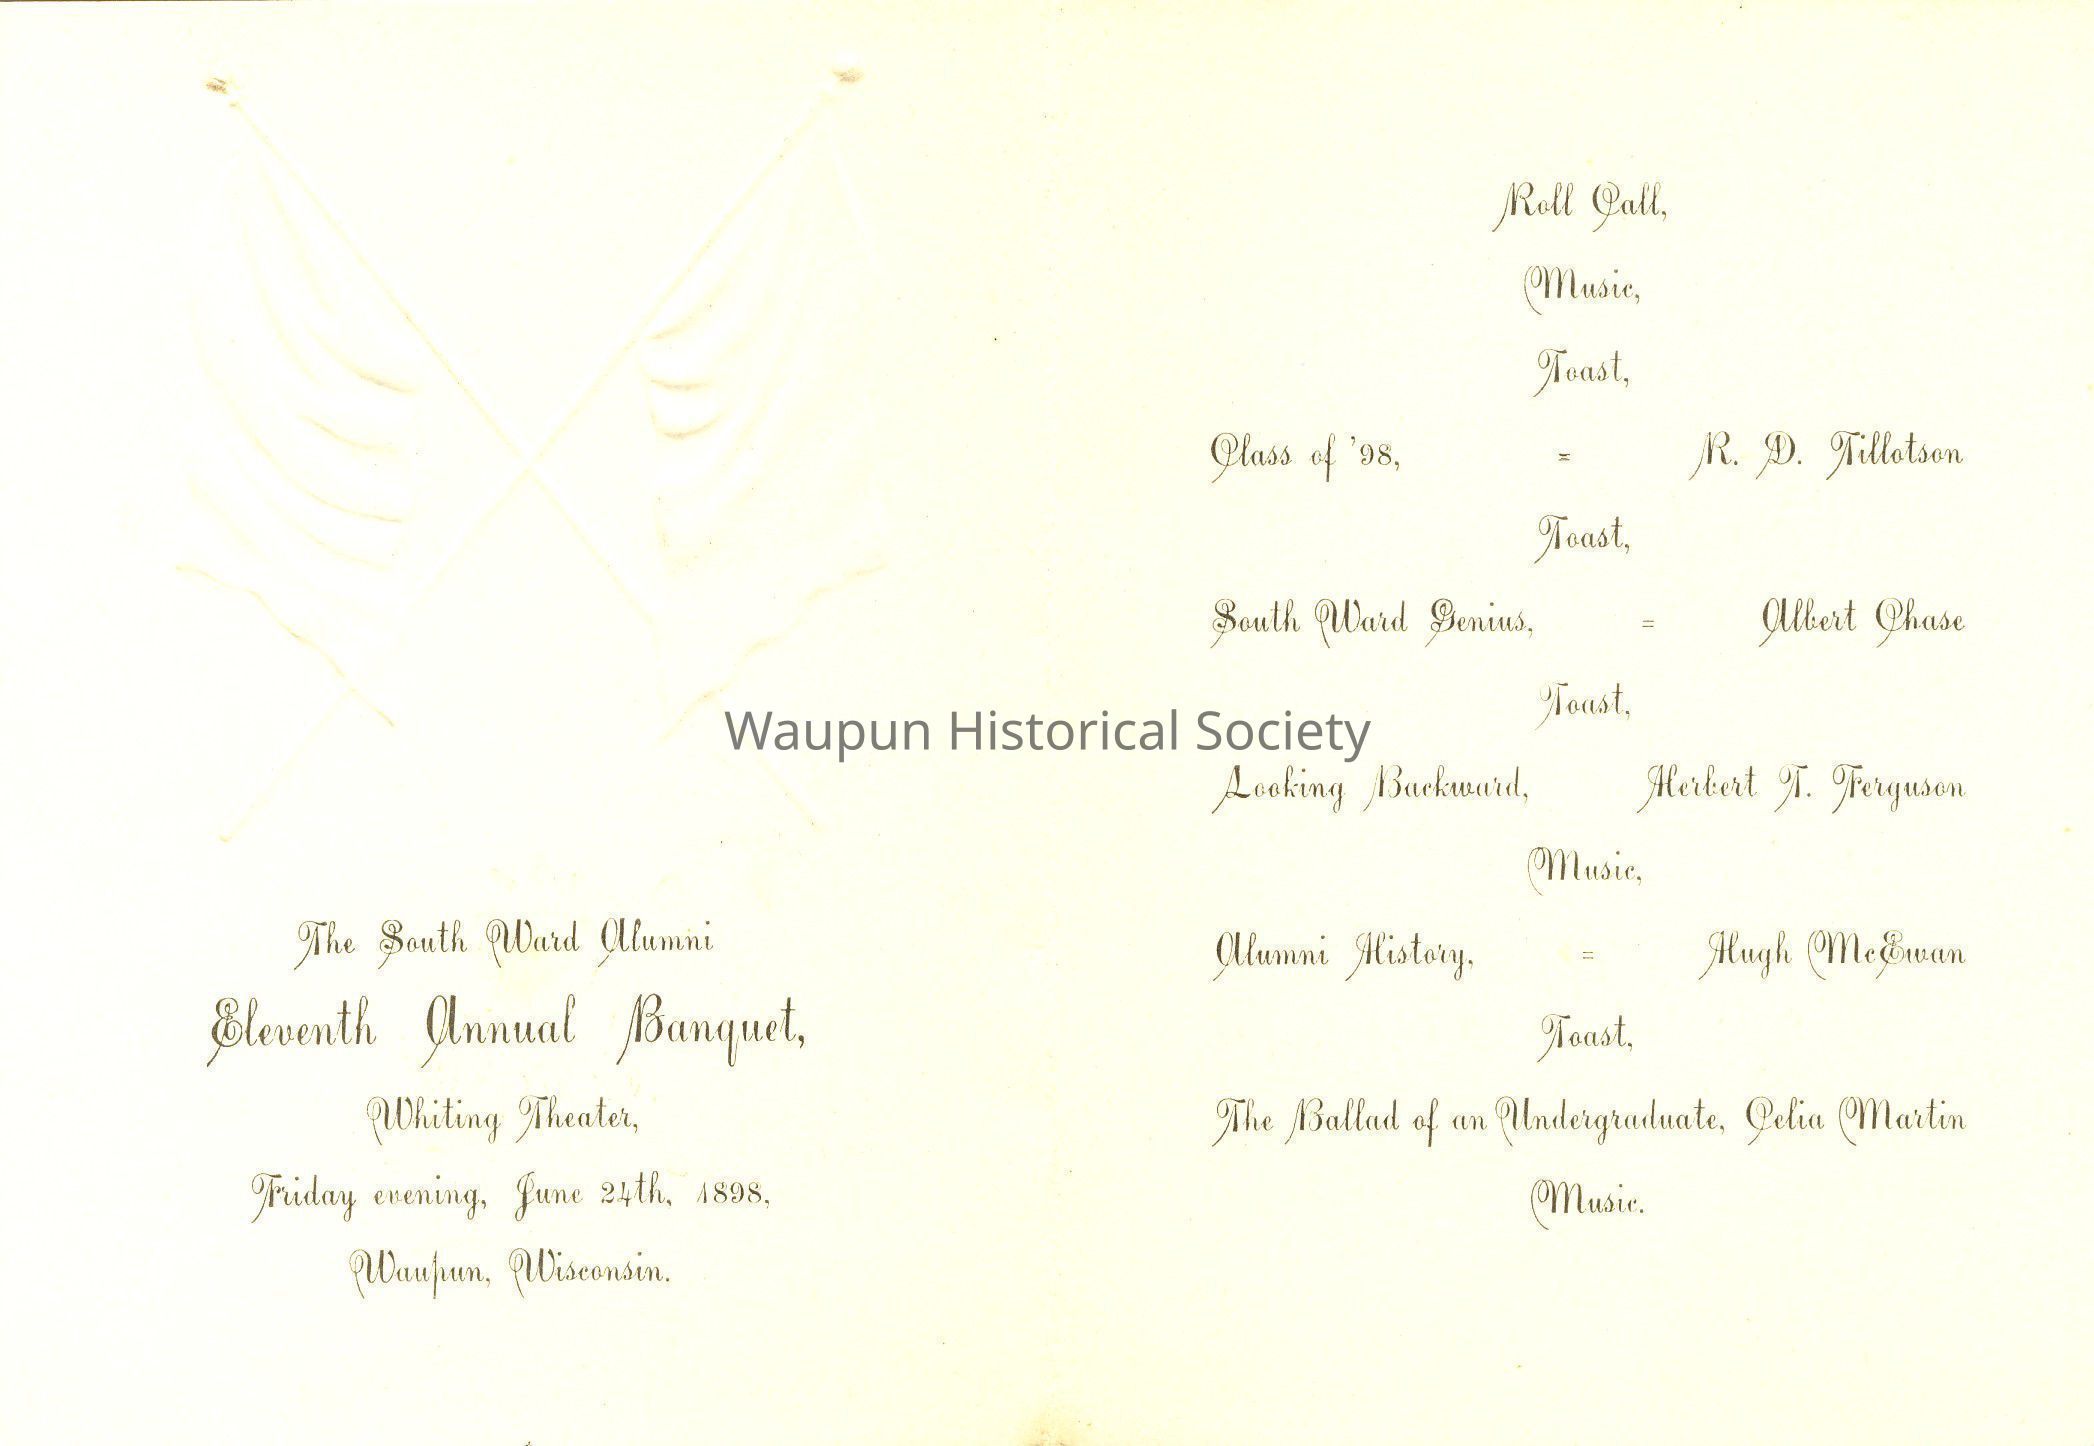 The South Ward Alumni
Eleventh Annual Banquet,
Whiting Theater,
Friday evening, June 24th, 1898,
Waupun, Wisconsin.
Roll Call,
Music,
Toast,
Class of '98, = R. D. Tillotson
Toast,
South Ward Genius, = Albert Chase
Toast,
Looking Backward, Herbert T. Ferguson
Music,
Alumni History, = Hugh McEwan
Toast,
The Ballad of an Undergraduate, Celia Martin
Music.
Waupun Historical Society